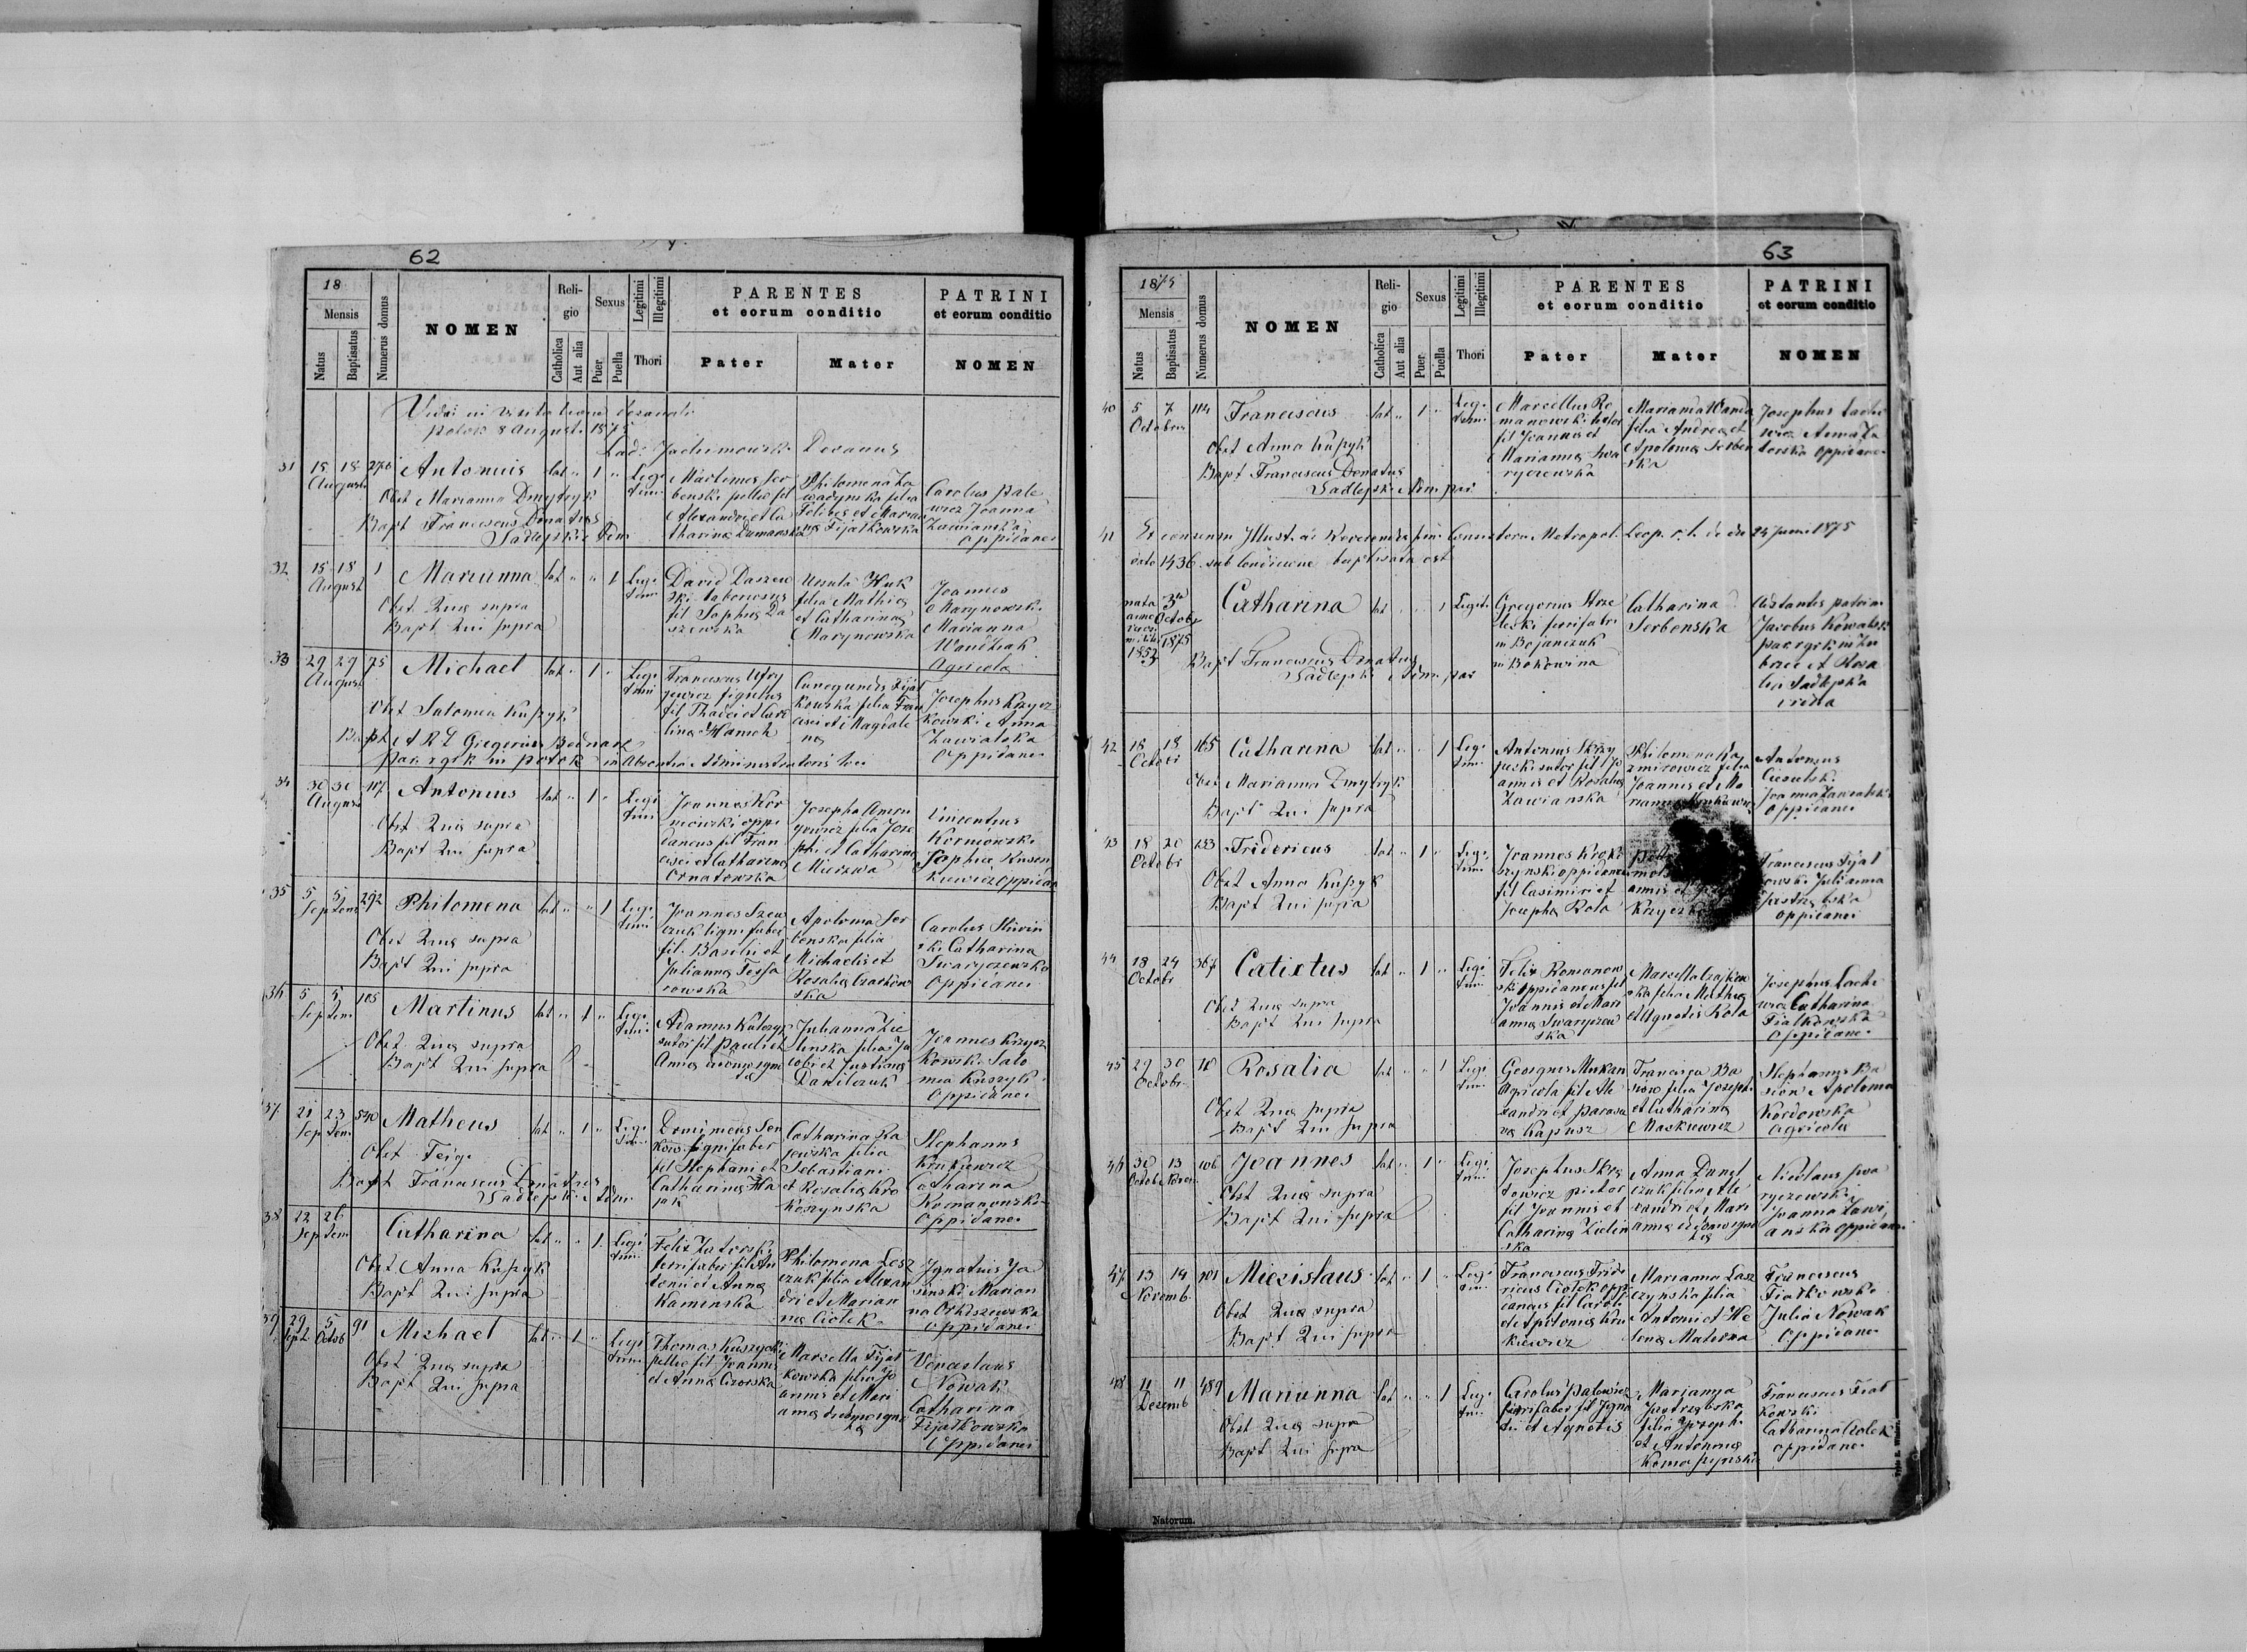 62
18
Mensis
Natus
Baptisatus
Numerus domus
NOMEN
Reli-
gio
Catholica
Aut alia
Sexus
Puer
Puella
Legitimi
Illegitimi
Thori
PARENTES
et eorum conditio
Pater
Mater
PATRINI
et eorum conditio
NOMEN
Potok 8 Augusti 1875
Decanus
31
15 18 276
August
Antonius
Obst Marianna Dmytryk
Bapt Franciscus Donatus
Sadlejski Adm
Legi
timi
Martinus Ser
benski pellio fil
Alexandri et Ca
tharina Dumanska
Philomena Za
wadynska filia
Felicis et Marian
na Fijalkowska
Carolus Pale
wicz Joanna
Zawianska
oppidanei
32
15 18 1
August
Marianna
Obst Quae supra
Bapt Qui supra
Legi
timi
David Daszew
ski laboriosus
fil Sophia Da
szewska
Ursula Huk
filia Mathia
et Catharina
Marynowska
Joannes
Marynowski
Marianna
Agricola
33
29 29 75
August
Michael
Obst Salomea Kuszyk
Bapt A R L Gregorius Bednarz
par r gr k in Potok in absentia Administratoris loci
Legi
timi
Franciscus Ufry
jewicz figulus
fil Thadei et Caro
lina Hanich
Cunegundis Fijal
kowska filia Fran
cisci et Magdale
na
Josephus Krzycz
kowski Anna
Zawialska
Oppidanei
34
30 30 117
August
Antonius
Obst Quae supra
Bapt Qui supra
Legi
timi
Joannes Kor
niowski oppi
daneus fil Fran
cisci et Catharina
Ornatowska
Josepha
filia Jose
phi et Catharina
Mierzwa
Vincentius
Korniowski
Sophia
oppidan
35
5 5 292
Septem
Philomena
Obst Quae supra
Bapt Qui supra
Legi
timi
Joannes Szew
czuk lignifaber
fil. Basilii et
Julianna Tessa
rowska
Apolonia Ser
benska filia
Michaelis et
Rosalia Czarkow
ska
Carolus Sliwin
ski Catharina
Swaryczewska
Oppidanei
36
5 5 105
Septem
Martinus
Obst Quae supra
Bapt Qui supra
Legi
timi
Adamus Kulczyk
sutor fil Pauli et
Anna
Julianna Zie
linska filia Ja
cobi et Justina
Danilczuk
Joannes Krzycz
kowski Salo
mea Kuszyk
Oppidanei
37
21 23 540
Septem
Matheus
Obst Feiga
Bapt Franciscus Donatus
Sadlejski Adm
Legi
timi
Dominicus Sen
kow lignifaber
fil Stephani et
Catharina
Catharina Ra
jewska filia
Sebastiani
et Rosalia Kro
koszynska
Stephanus
Krukiewicz
Catharina
Romanowska
Oppidanei
38
22 26
Septem
Catharina
Obst Anna Kuszyk
Bapt Qui supra
Legi
timi
Felix Zatorski
ferrifaber fil An
tonii et Anna
Kaminska
Philomena Lesz
czuk filia Alexan
dri et Marian
na Ciolek
Ignatius Ja
sinski Marian
na
Oppidanei
39
29 5 91
Sept Octob
Michael
Obst Quae supra
Bapt Qui supra
Legi
timi
Thomas Kuszyk
pellio fil Joannis
et Anna
Marcella Fijal
kowska filia Jo
annis et Mari
anna
Venceslaus
Nowak
Catharina
Fijalkowska
Oppidanei
63
1875
Mensis
Natus
Baptisatus
Numerus domus
NOMEN
Reli-
gio
Catholica
Aut alia
Sexus
Puer
Puella
Legitimi
Illegitimi
Thori
PARENTES
et eorum conditio
Pater
Mater
PATRINI
et eorum conditio
NOMEN
40
5 7 114
Octobris
Franciscus
Obst Anna Kuszyk
Bapt Franciscus Donatus
Sadlejski Adm par
Legi
timi
Marcellus Ro
manowski
fil Joannis et
Marianna Swa
ryczewska
Marianna
filia Andrea et
Apolonia Serben
ska
Josephus Lache
wicz Anna Za
torska oppidanei
41
Ex consensu Illust. ac Reverendis. Consistorii Metropol. Leop. r. l. de dto 24 Junii 1875
exto 1436 sub conditione baptisata est
nata
1853
3
Octobr
1875
Catharina
Bapt Franciscus Donatus
Sadlejski Adm par
Legiti
Gregorius Strze
lecki ferrifaber
in Bojanczuk
in Bukowina
Catharina
Serbenska
Adstantes patrini
Jacobus Kowalski
par r gr k in Zu
brzec et Rosa
lia Sadlejska
vidua
42
18 18 165
Octobr
Catharina
Obst Marianna Dmytryk
Bapt Qui supra
Legi
timi
Antonius Skrzy
pecki sutor fil Jo
annis et Rosalia
Zawianska
Philomena Ka
zmirowicz filia
Joannis et Ma
rianna
Antonius
Joanna Zawialska
Oppidanei
43
18 20 253
Octobr
Fridericus
Obst Anna Kuszyk
Bapt Qui supra
Legi
timi
Joannes Kroko
szynski oppidaneus
fil Casimiri et
Josepha Rola
annis et
Franciscus Fijal
kowski Julianna
Jastrzebska
oppidanei
44
18 24 367
Octobr
Calixtus
Obst Quae supra
Bapt Qui supra
Legi
timi
Felix Romanow
ski oppidaneus fil
Joannis et Mari
anna Swaryczew
ska
Marcella Czajkow
ska filia Mathia
et Agnetis Rola
Josephus Lache
wicz Catharina
Fialkowska
Oppidanei
45
29 30 18
Octobr
Rosalia
Obst Quae supra
Bapt Qui supra
Legi
timi
Georgius Mukan
Agricola fil Ale
xandri et Parasce
va Kapusz
Francisca Ba
siow filia Josephi
et Catharina
Maskiewicz
Stephanus Ba
siow Apolonia
Kordowska
Agricola
46
30 13 106
Octob Novem
Joannes
Obst Quae supra
Bapt Qui supra
Legi
timi
Josephus Skrą
towicz pictor
fil Joannis et
Catharina Zielin
ska
Anna Danyl
czuk filia Ale
xandri et Mari
anna
Nicolaus Swa
ryczewski
Joanna Zawi
anska oppidanei
47
13 14 101
Novemb
Miecislaus
Obst Quae supra
Bapt Qui supra
Legi
timi
Franciscus Fride
ricus Ciolek oppi
daneus fil Caroli
et Apolonia Kru
kiewicz
Marianna Lasz
czynska filia
Antonii et He
lena Materna
Franciscus
Fialkowski
Julia Nowak
Oppidanei
48
11 11 489
Decemb
Marianna
Obst Quae supra
Bapt Qui supra
Legi
timi
Carolus Palewicz
ferrifaber fil Igna
tii et Agnetis
Marianna
Jastrzebska
filia Josephi
et Antonina
Franciscus Fial
kowski
Catharina Ciolek
oppidanei
Natorum.